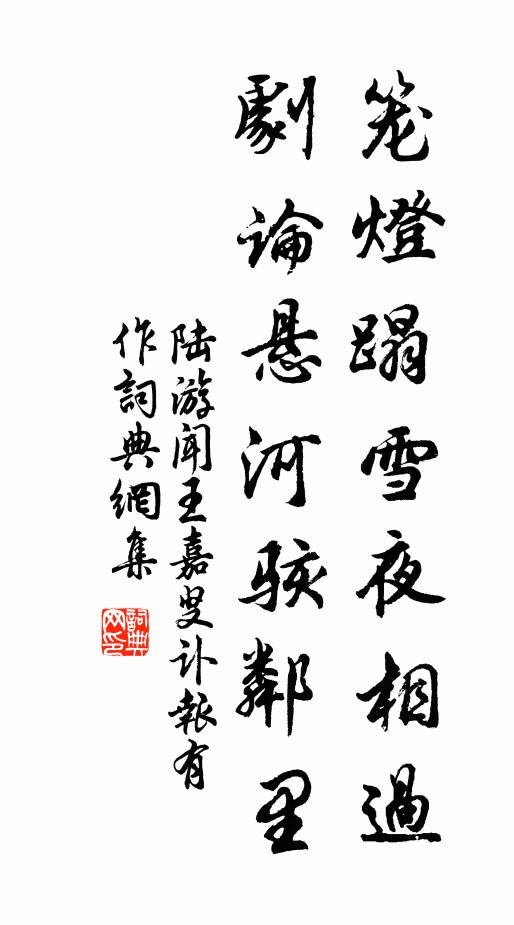 笼燈蹋雪夜相過
劇論悬河骇鄰里
陆游闻王嘉叟讣報有
作詞典網集
詞典
网印